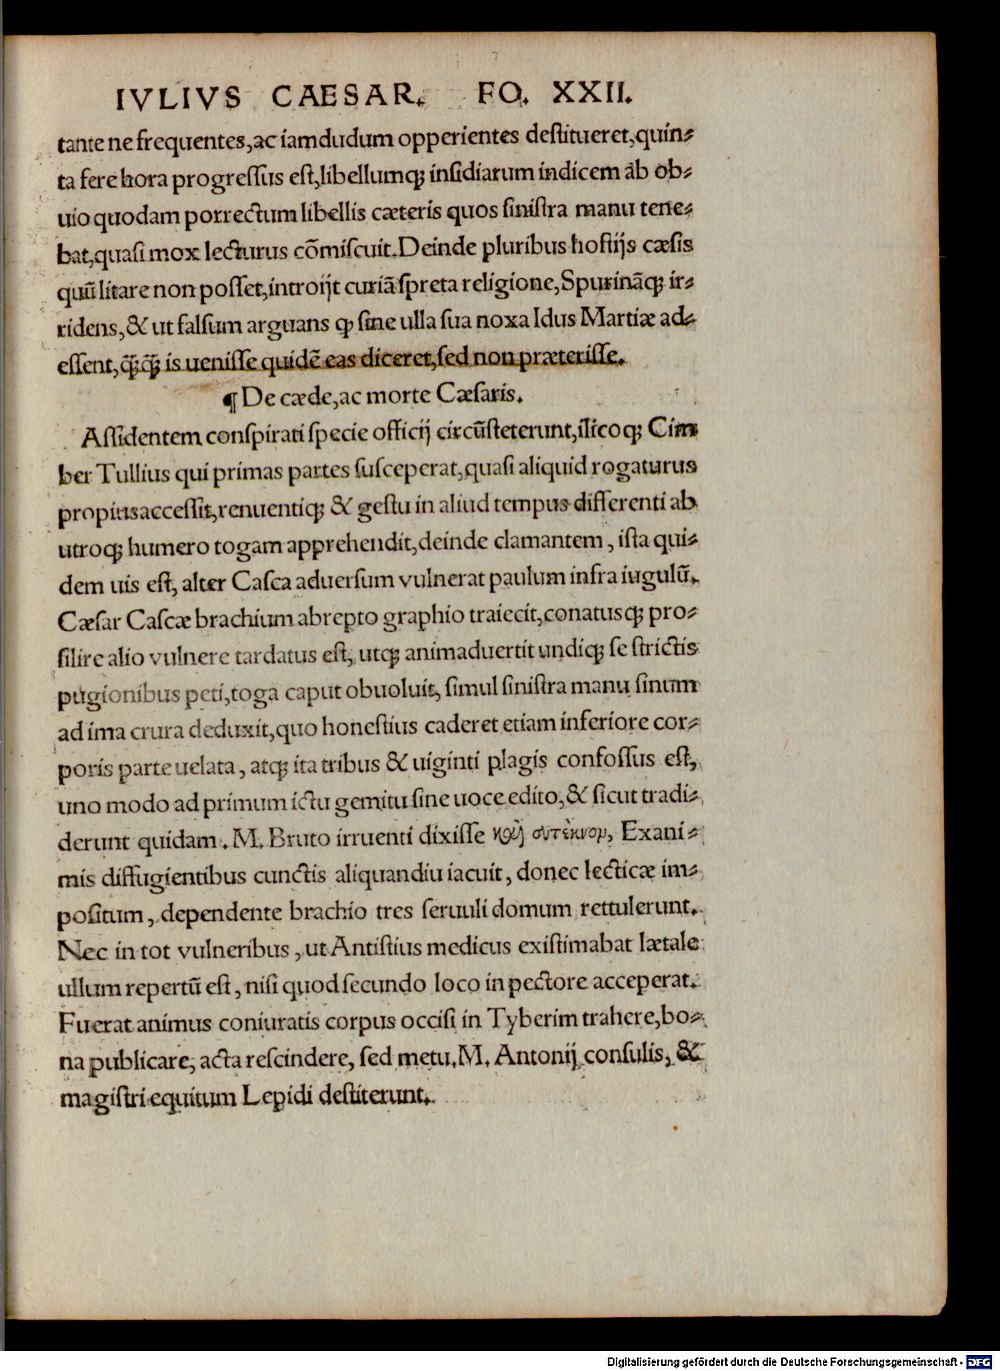 IVLIVS CAESAR. FO. XXII.
tante ne frequentes,ac iamdudum opperientes destitueret,quin⸗
ta fere hora progressus est,libellumq; insidiarum indicem ab ob⸗
uio quodam porrectum libellis cæteris quos sinistra manu tene⸗
bat,quasi mox lecturus cõmiscuit.Deinde pluribus hostijs cæsis
quũ litare non posset,introijt curiã spreta religione,Spurinãq; ir⸗
ridens,& ut falsum arguans ꝙ sine ulla sua noxa Idus Martiæ ad⸗
essent,q̃q̃ is uenisse quidẽ eas diceret,sed non præterisse.
¶ De cæde,ac morte Cæsaris.
Assidentem conspirati specie officij circũsteterunt,ilicoq; Cim
ber Tullius qui primas partes susceperat,quasi aliquid rogaturus
propius accessit,renuentiq; & gestu in aliud tempus differenti ab
utroq; humero togam apprehendit,deinde clamantem, ista qui⸗
dem uis est, alter Casca aduersum vulnerat paulum infra iugulũ.
Cæsar Cascæ brachium abrepto graphio traiecit,conatusq; pro⸗
silire alio vulnere tardatus est, utq; animaduertit undiq; se strictis
pugionibus peti,toga caput obuoluit, simul sinistra manu sinum
ad ima crura deduxit,quo honestius caderet etiam inferiore cor⸗
poris parte uelata, atq; ita tribus & uiginti plagis confossus est,
uno modo ad primum ictu gemitu sine uoce edito,& sicut tradi⸗
derunt quidam. M. Bruto irruenti dixisse καὶ συτέκνον, Exani⸗
mis diffugientibus cunctis aliquandiu iacuit, donec lecticæ im⸗
positum, dependente brachio tres seruuli domum rettulerunt.
Nec in tot vulneribus, ut Antistius medicus existimabat lætale
ullum repertũ est, nisi quod secundo loco in pectore acceperat.
Fuerat animus coniuratis corpus occisi in Tyberim trahere,bo⸗
na publicare, acta rescindere, sed metu.M. Antonij consulis, &
magistri equitum Lepidi destiterunt.
Digitalisierung gefördert durch die Deutsche Forschungsgemeinschaft - DFG